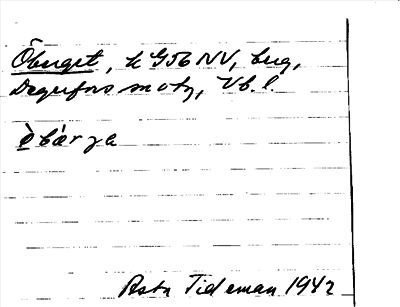 Öberget, k G56 NV, berg,
Degerfors snotg, Vb. l.
èbær ya
Asta Tideman 1942